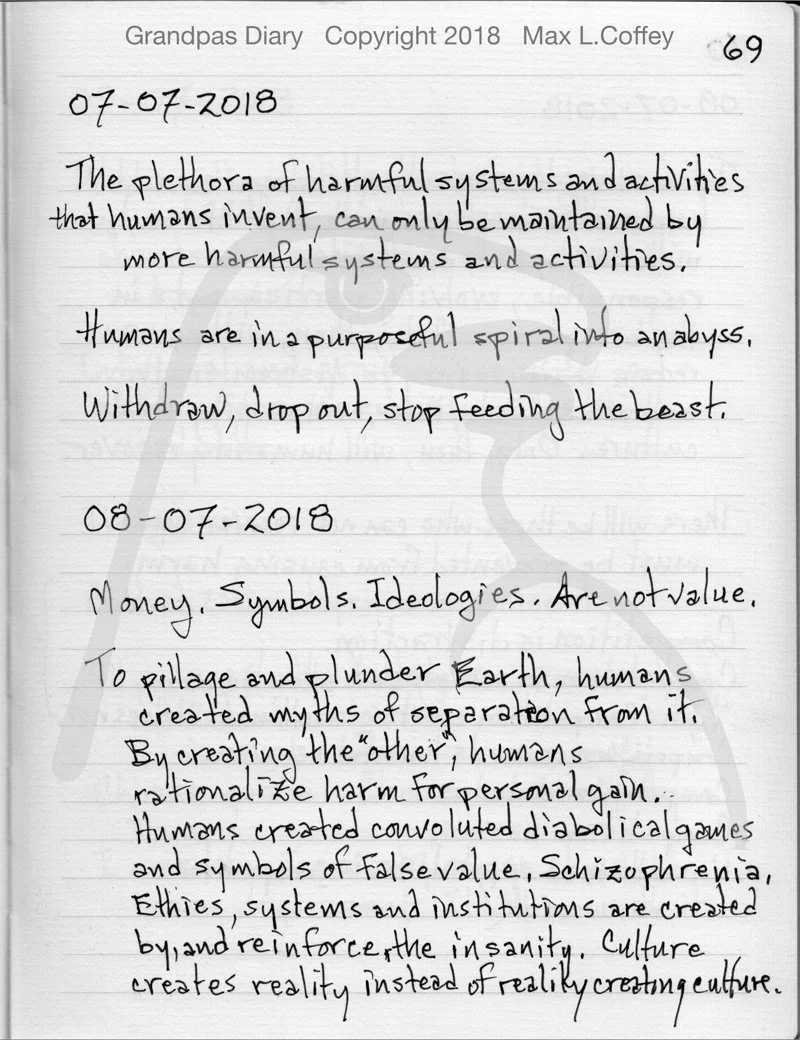 Grandpas Diary Copyright 2018 Max L.Coffey
69
07-07-2018
The plethora of harmful systems and activities
that humans invent, can only be maintained by
more harmful systems and activities.
Humans are in a purposeful spiral into an abyss.
Withdraw, drop out, stop feeding the beast.
08-07-2018
Money. Symbols. Ideologies. Are not value.
To pillage and plunder Earth, humans
created myths of separation from it.
By creating the "other", humans
rationalize harm for personal gain.
Humans created convoluted diabolical games
and symbols of false value. Schizophrenia.
Ethies, systems and institutions are created
by, and reinforce, the insanity. Culture
creates reality instead of reality creating culture.